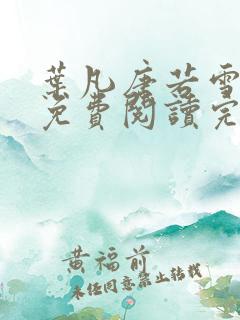 葉凡唐若雪
免費閱讀完
黃福前
未經同意禁止轉載